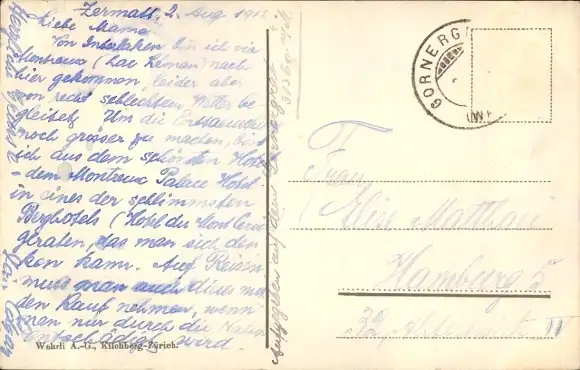 Zermatt, 2. Aug 191
Liebe Mama
Von Interlaken bin ich via
Montreux (Lac Leman) nach
hier gekommen, leider aber
von recht schlechtem Wetter be-
gleitet. Um die
noch grösser zu machen, bin
ich aus dem schönsten Hotel
- dem Montreux Palace Hotel -
in eines der schlimmsten
Berghotels (Hotel du Mont Cervin
geraten, das man sich den-
ken kann. Auf Reisen
muss man auch dies mit in
den Kauf nehmen, wenn
man nur durch die Natur
entschädigt wird.
Herzlichen
Aufgegeben auf dem Gornergrat
Wehrli A.-G., Kilchberg-Zürich.
GORNERGRAT
Frau
Elise Matthaei
Hamburg 5